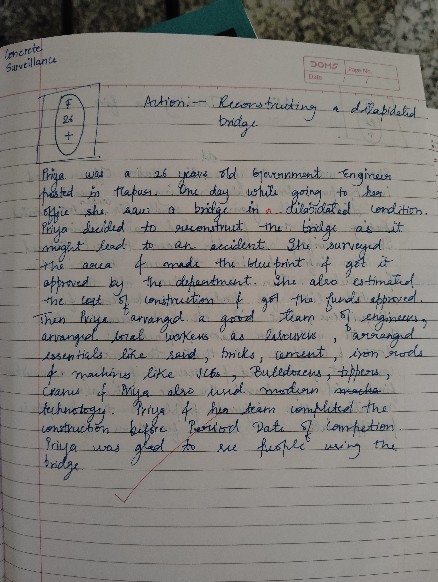 Concrete
Surveillance
DOMS
Page No.
Date
F
26
+
Action:- Reconstructing a dilapidated
bridge
Priya was a 26 years old Government Engineer
posted in Hapur. One day while going to her
office she saw a bridge in a dilapidated condition.
Priya decided to reconstruct the bridge as it
might lead to an accident. She surveyed
the area & made the blueprint & got it
approved by the department. She also estimated
the cost of construction & got the funds approved.
Then Priya arranged a good team of engineers,
arranged local workers as labourers, arranged
essentials like sand, bricks, cement, iron rods
& machines like JCBs, Bulldozers, tippers,
Cranes & Priya also used modern
technology. Priya & her team completed the
construction before Date of competion.
Priya was glad to see people using the
bridge.